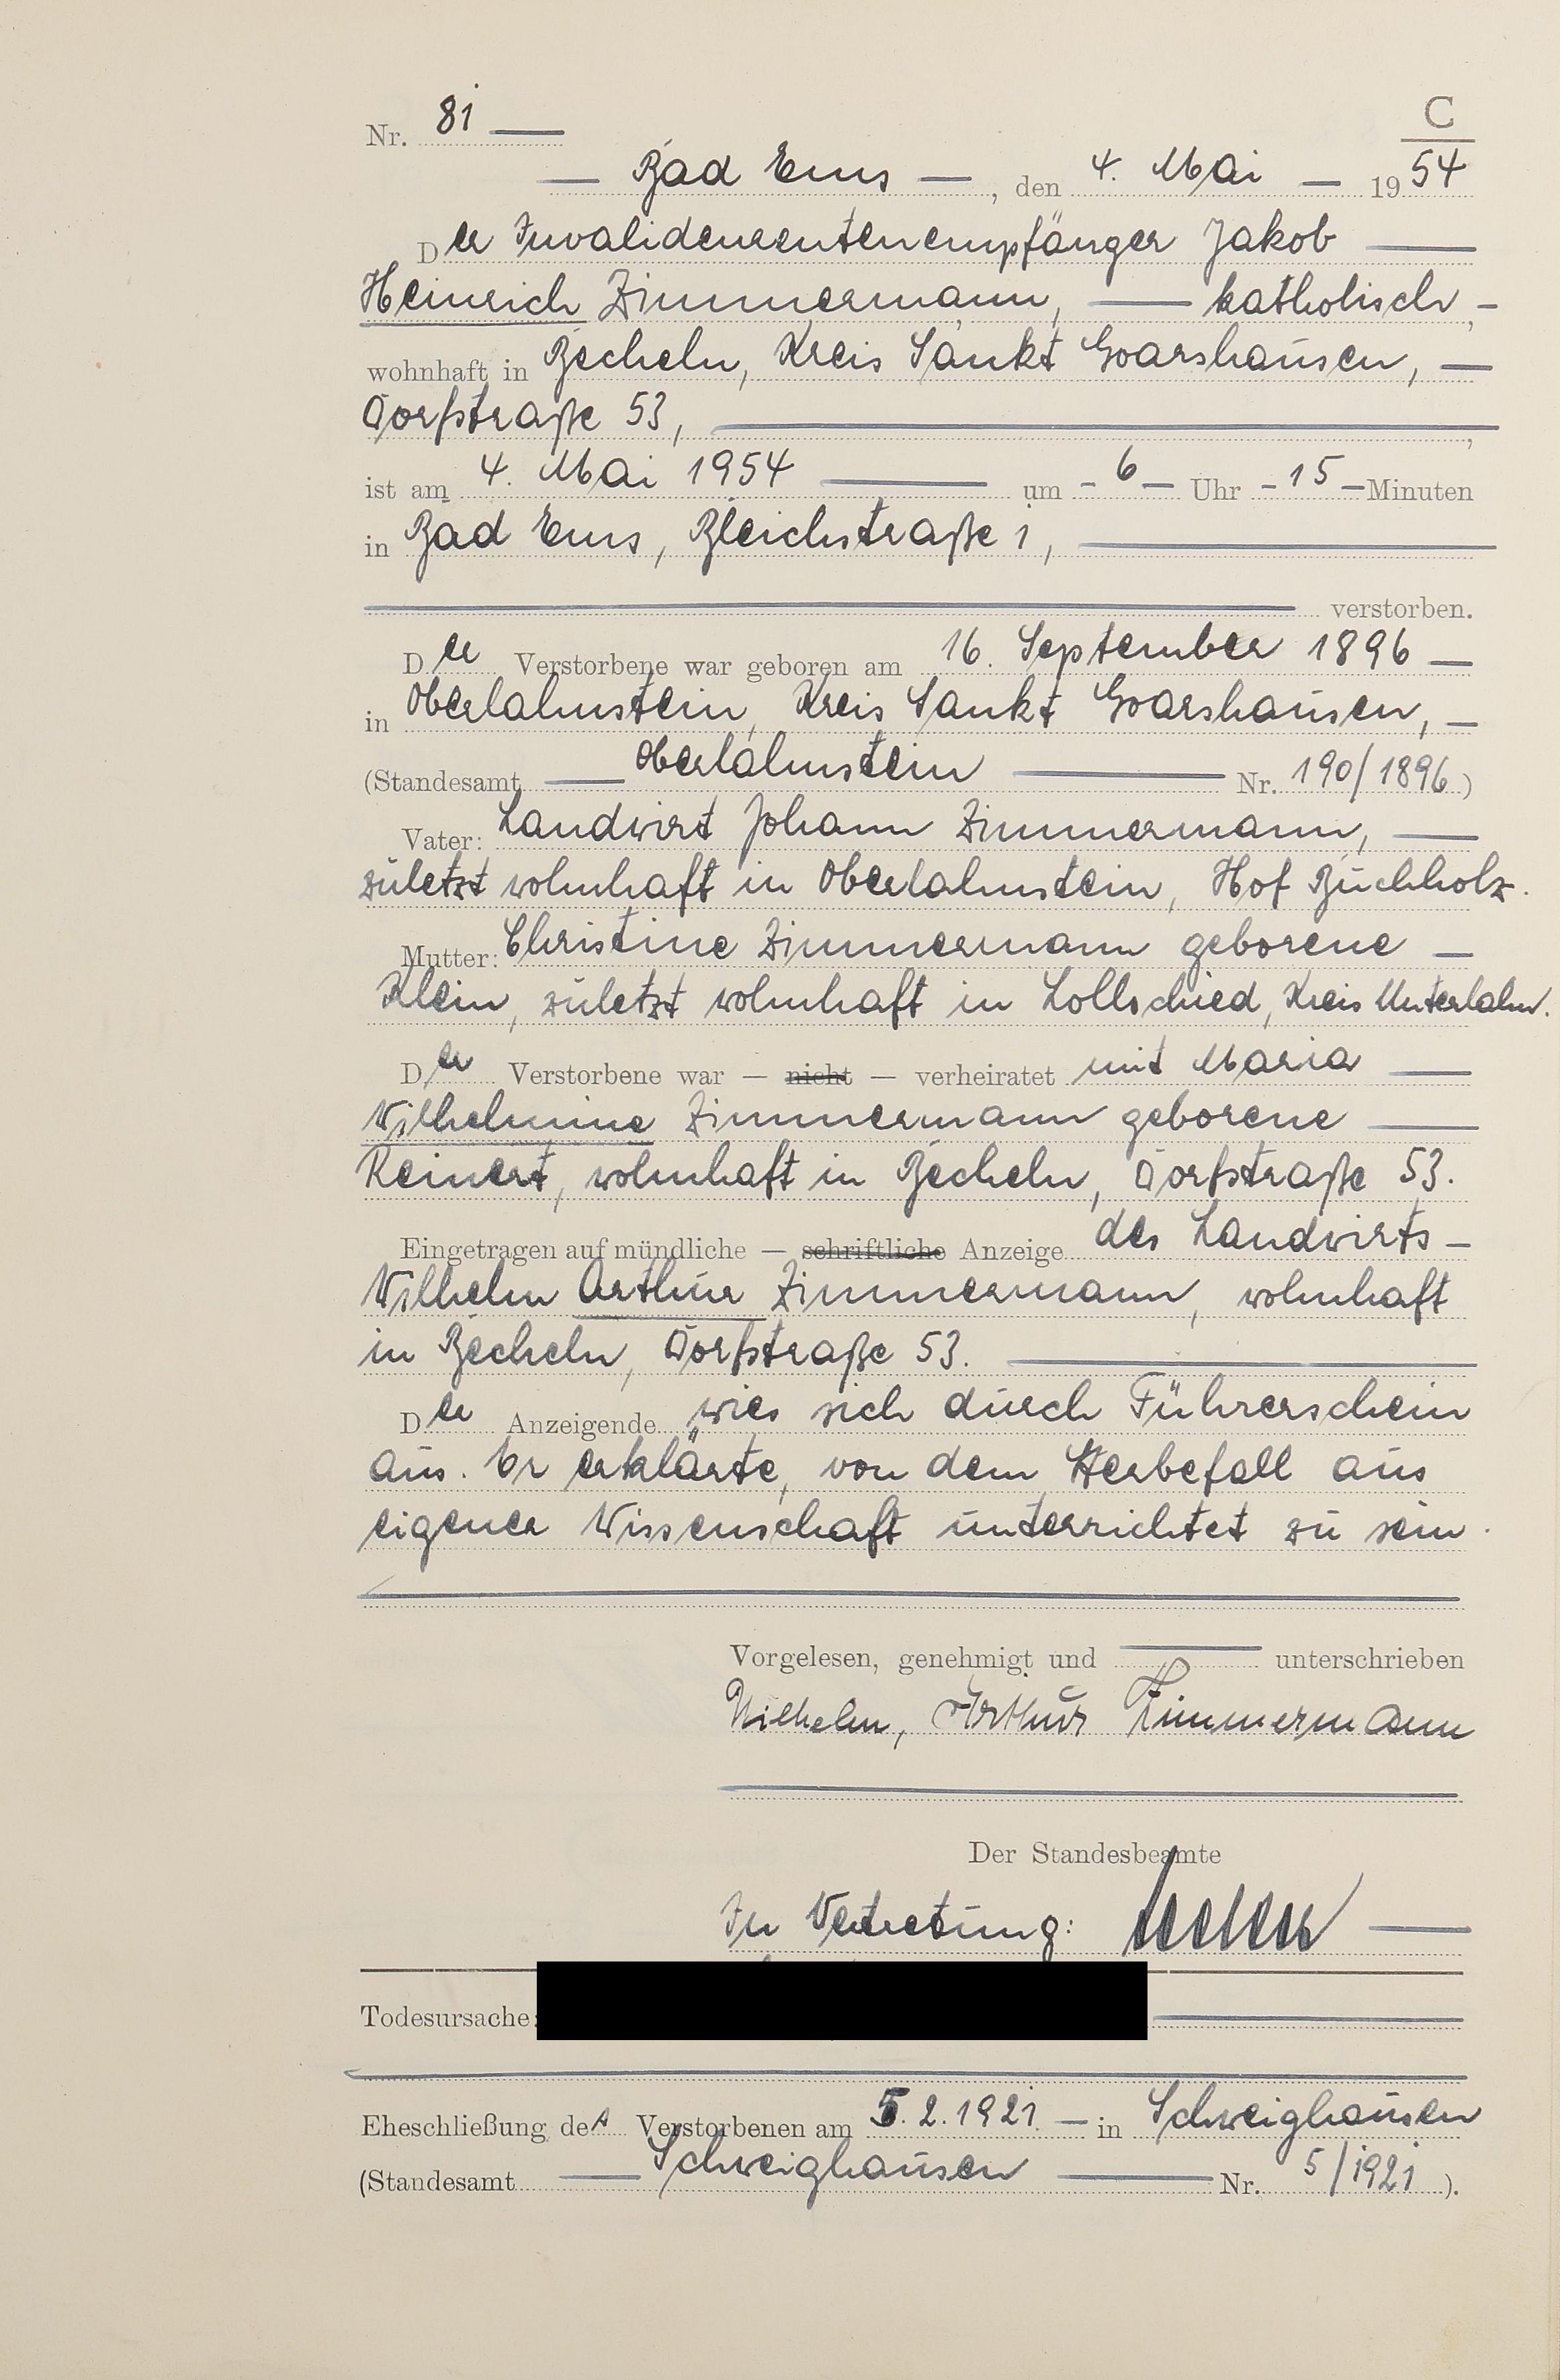 Nr. 81
C
Bad Ems, den 4. Mai 1954
Der Invalidenrentenempfänger Jakob
Heinrich Zimmermann, katholisch,
wohnhaft in Becheln, Kreis Sankt Goarshausen,
Dorfstraße 53,
ist am 4. Mai 1954 um 6 Uhr 15 Minuten
in Bad Ems, Bleichstraße 1,
verstorben.
Der Verstorbene war geboren am 16. September 1896
in Oberlahnstein, Kreis Sankt Goarshausen,
(Standesamt Oberlahnstein Nr. 190/1896)
Vater: Landwirt Johann Zimmermann,
zuletzt wohnhaft in Oberlahnstein, Hof Buchholz.
Mutter: Christine Zimmermann geborene
Klein, zuletzt wohnhaft in Lollschied, Kreis Unterlahn.
Der Verstorbene war — nicht — verheiratet mit Maria
Wilhelmine Zimmermann geborene
Reinert, wohnhaft in Becheln, Dorfstraße 53.
Eingetragen auf mündliche — schriftliche Anzeige des Landwirts
Wilhelm Arthur Zimmermann, wohnhaft
in Becheln, Dorfstraße 53.
Der Anzeigende wies sich durch Führerschein
aus. Er erklärte, von dem Sterbefall aus
eigener Wissenschaft unterrichtet zu sein.
Vorgelesen, genehmigt und unterschrieben
Wilhelm, Arthur Zimmermann
Der Standesbeamte
In Vertretung:
Todesursache:
Eheschließung des Verstorbenen am 5.2.1921 in Schweighausen
(Standesamt Schweighausen Nr. 5/1921).